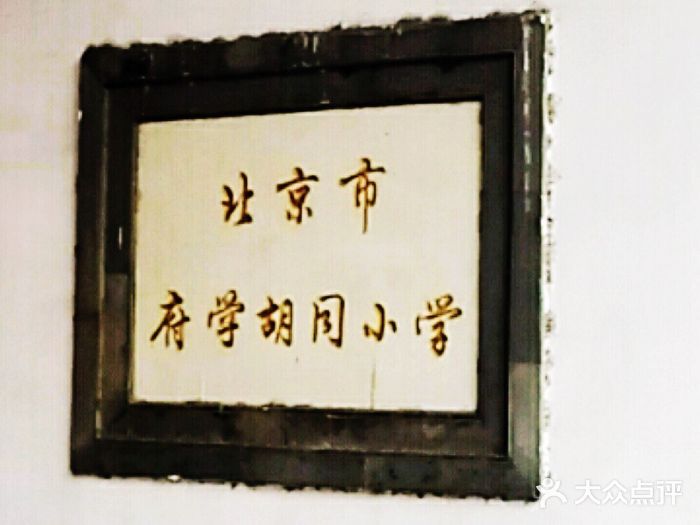 北京市
府学胡同小学
大众点评